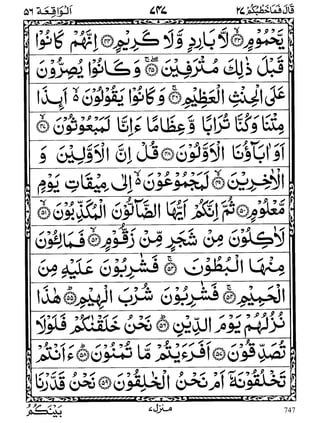 قَالَ فَمَا خَطْبُكُمْ ٢٧ ٧٤٧ اَلْوَاقِعَة ٥٦
يَّحْمُوْمٍ ﴿٤٣﴾ لَّا بَارِدٍ وَّلَا كَرِيْمٍ ﴿٤٤﴾ اِنَّهُمْ كَانُوْا
قَبْلَ ذٰلِكَ مُتْرَفِيْنَ ﴿٤٥﴾ وَكَانُوْا يُصِرُّوْنَ
عَلَى الْحِنْثِ الْعَظِيْمِ ﴿٤٦﴾ وَكَانُوْا يَقُوْلُوْنَ ۙ اَىِٕذَا
مِتْنَا وَكُنَّا تُرَابًا وَّعِظَامًا ءَاِنَّا لَمَبْعُوْثُوْنَ ﴿٤٧﴾
اَوَاٰبَآؤُنَا الْاَوَّلُوْنَ ﴿٤٨﴾ قُلْ اِنَّ الْاَوَّلِيْنَ وَ
الْاٰخِرِيْنَ ﴿٤٩﴾ لَمَجْمُوْعُوْنَ ۙ اِلٰى مِيْقَاتِ يَوْمٍ
مَّعْلُوْمٍ ﴿٥٠﴾ ثُمَّ اِنَّكُمْ اَيُّهَا الضَّآلُّوْنَ الْمُكَذِّبُوْنَ ﴿٥١﴾
لَاٰكِلُوْنَ مِنْ شَجَرٍ مِّنْ زَقُّوْمٍ ﴿٥٢﴾ فَمَالِـُٔوْنَ
مِنْهَا الْبُطُوْنَ ﴿٥٣﴾ فَشٰرِبُوْنَ عَلَيْهِ مِنَ
الْحَمِيْمِ ﴿٥٤﴾ فَشٰرِبُوْنَ شُرْبَ الْهِيْمِ ﴿٥٥﴾ هٰذَا
نُزُلُهُمْ يَوْمَ الدِّيْنِ ﴿٥٦﴾ نَحْنُ خَلَقْنٰكُمْ فَلَوْلَا
تُصَدِّقُوْنَ ﴿٥٧﴾ اَفَرَءَيْتُمْ مَّا تُمْنُوْنَ ﴿٥٨﴾ ءَاَنْتُمْ
تَخْلُقُوْنَهٗۤ اَمْ نَحْنُ الْخٰلِقُوْنَ ﴿٥٩﴾ نَحْنُ قَدَّرْنَا
بَيْنَكُمُ
منزل ٧
747